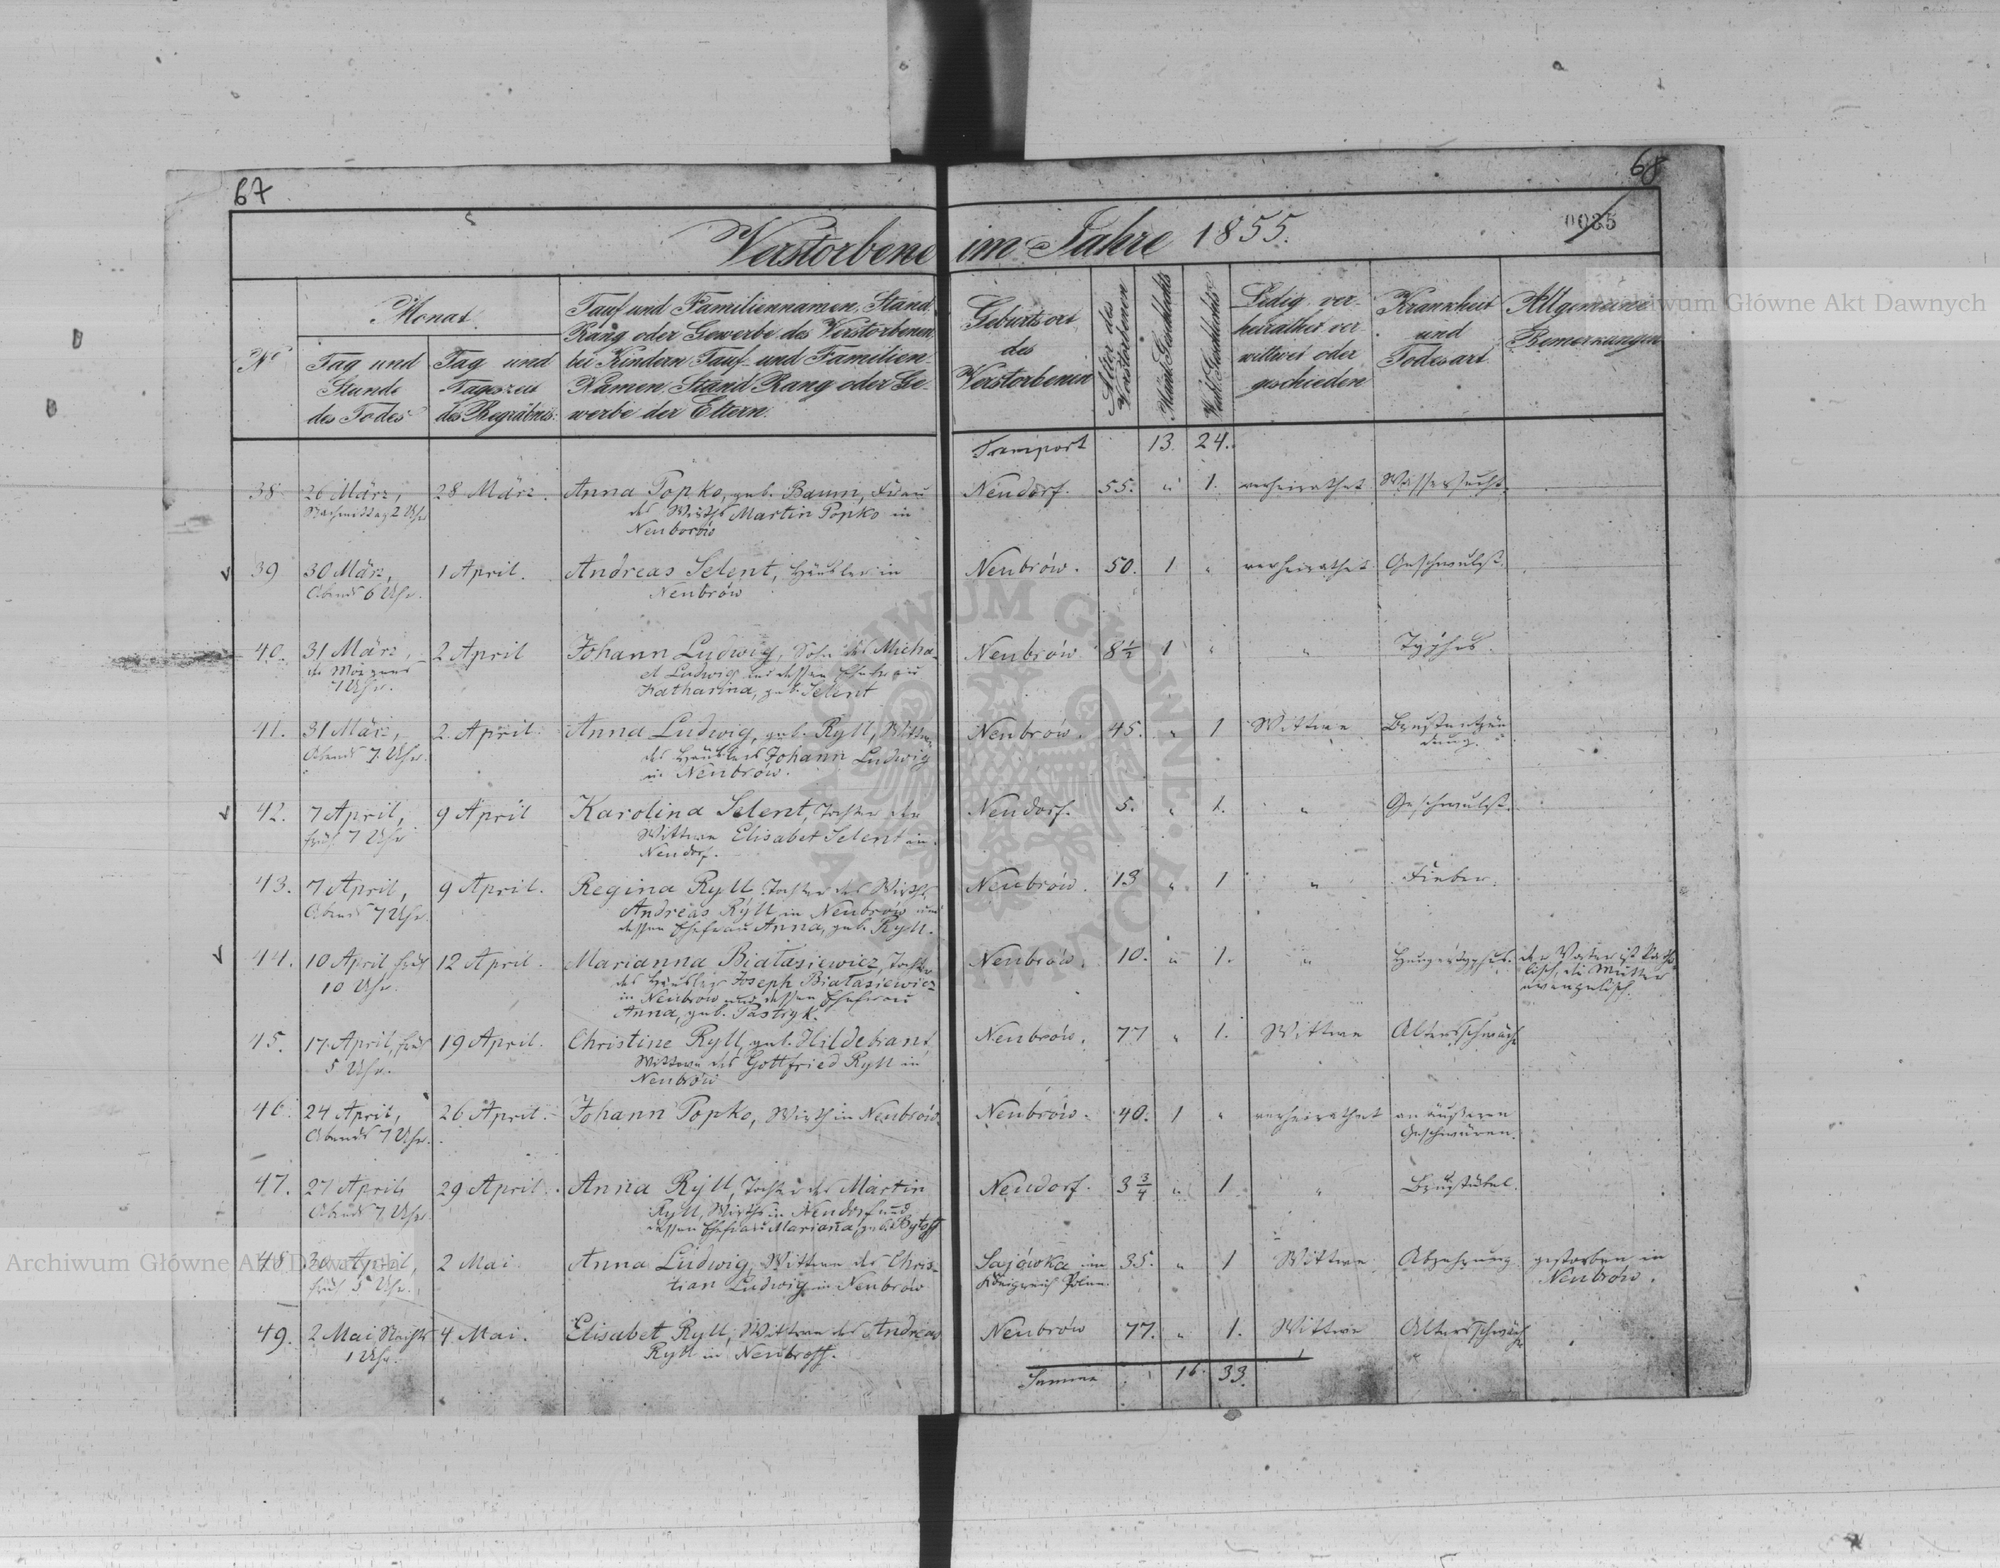 67
68
Verstorbene im Jahre 1855.
0035
No
Monat
Tag und
Stunde
des Todes
Tag und
Tageszeit
des Begräbnis:
Tauf und Familiennamen, Stand
Rang oder Gewerbe des Verstorbenen,
bei Kindern Tauf- und Familien-
Namen, Stand Rang oder Ge-
werbe der Eltern.
Geburtsort
des
Verstorbenen
Alter des
Verstorbenen
Männl. Geschlechts
Weibl. Geschlechts
Ledig, ver-
heirathet ver
wittwet oder
geschieden
Krankheit
und
Todesart
Allgemeine
Bemerkungen
Transport 13. 24.
38 26 März, 28 März. Anna Popko, geb. Baum, Frau Neudorf. 55. " 1. verheirathet Wassersucht.
Nachmittag 2 Uhr des Wirths Martin Popko in
Neuborów
39 30 März, 1 April. Andreas Selent, Häusler in Neubrów. 50. 1 " verheirathet Geschwulst.
Abends 6 Uhr. Neubrów
40. 31 März, 2 April Johann Ludwig, Sohn des Micha- Neubrów 8½ 1 " " Typhus.
Morgens el Ludwig und dessen Ehefrau
7 Uhr. Katharina, geb. Selent
41. 31 März, 2. April. Anna Ludwig, geb. Ryll, Wittwe Neubrów. 45. " 1 Wittwe Brustentzün
Abends 7 Uhr. des Häuslers Johann Ludwig dung.
in Neubrów.
42. 7 April, 9 April Karolina Selent, Tochter der Neudorf. 5. " 1. " Geschwulst.
früh 7 Uhr Wittwe Elisabet Selent in
Neudorf.
43. 7 April, 9 April. Regina Ryll Tochter des Wirths Neubrów. 13 " 1 " Fieber.
Abends 7 Uhr. Andreas Ryll in Neubrów und
dessen Ehefrau Anna, geb. Ryll.
44. 10 April, früh 12 April. Marianna Białasiewicz, Tochter Neubrów. 10. " 1. " Hungertyphus. der Vater ist katho
10 Uhr. des Häusler Joseph Białasiewicz lisch, die Mutter
in Neubrow und dessen Ehefrau evangelisch.
Anna, geb. Pastryk.
45. 17. April, früh 19 April. Christine Ryll, geb. Hildebrant Neubrów. 77 " 1. Wittwe Altersschwäche
5 Uhr. Wittwe des Gottfried Ryll in
Neubrów
46. 24 April, 26 April. Johann Popko, Wirth in Neubrów. Neubrów. 40. 1 " verheirathet an äußeren
Abends 7 Uhr. Geschwüren.
47. 27 April, 29 April. Anna Ryll, Tochter des Martin Neudorf. 3¾ " 1 " Brustübel.
Abends 7 Uhr. Ryll, Wirths in Neudorf und
dessen Ehefrau Mariana, geb.
48 30 April, 2 Mai Anna Ludwig, Wittwe des Chris- Sajówka im 35. " 1 Wittwe Abzehrung gestorben in
früh 5 Uhr. tian Ludwig in Neubrów Königreich Polen Neubrów.
49. 2 Mai Nachts 4 Mai. Elisabet Ryll, Wittwe des Andreas Neubrów 77. " 1. Wittwe Altersschwäche
1 Uhr. Ryll in Neubroff.
Summa 16. 33.
Archiwum Główne Akt Dawnych
Archiwum Główne Akt Dawnych
ARCHIWUM GŁÓWNE AKT DAWNYCH